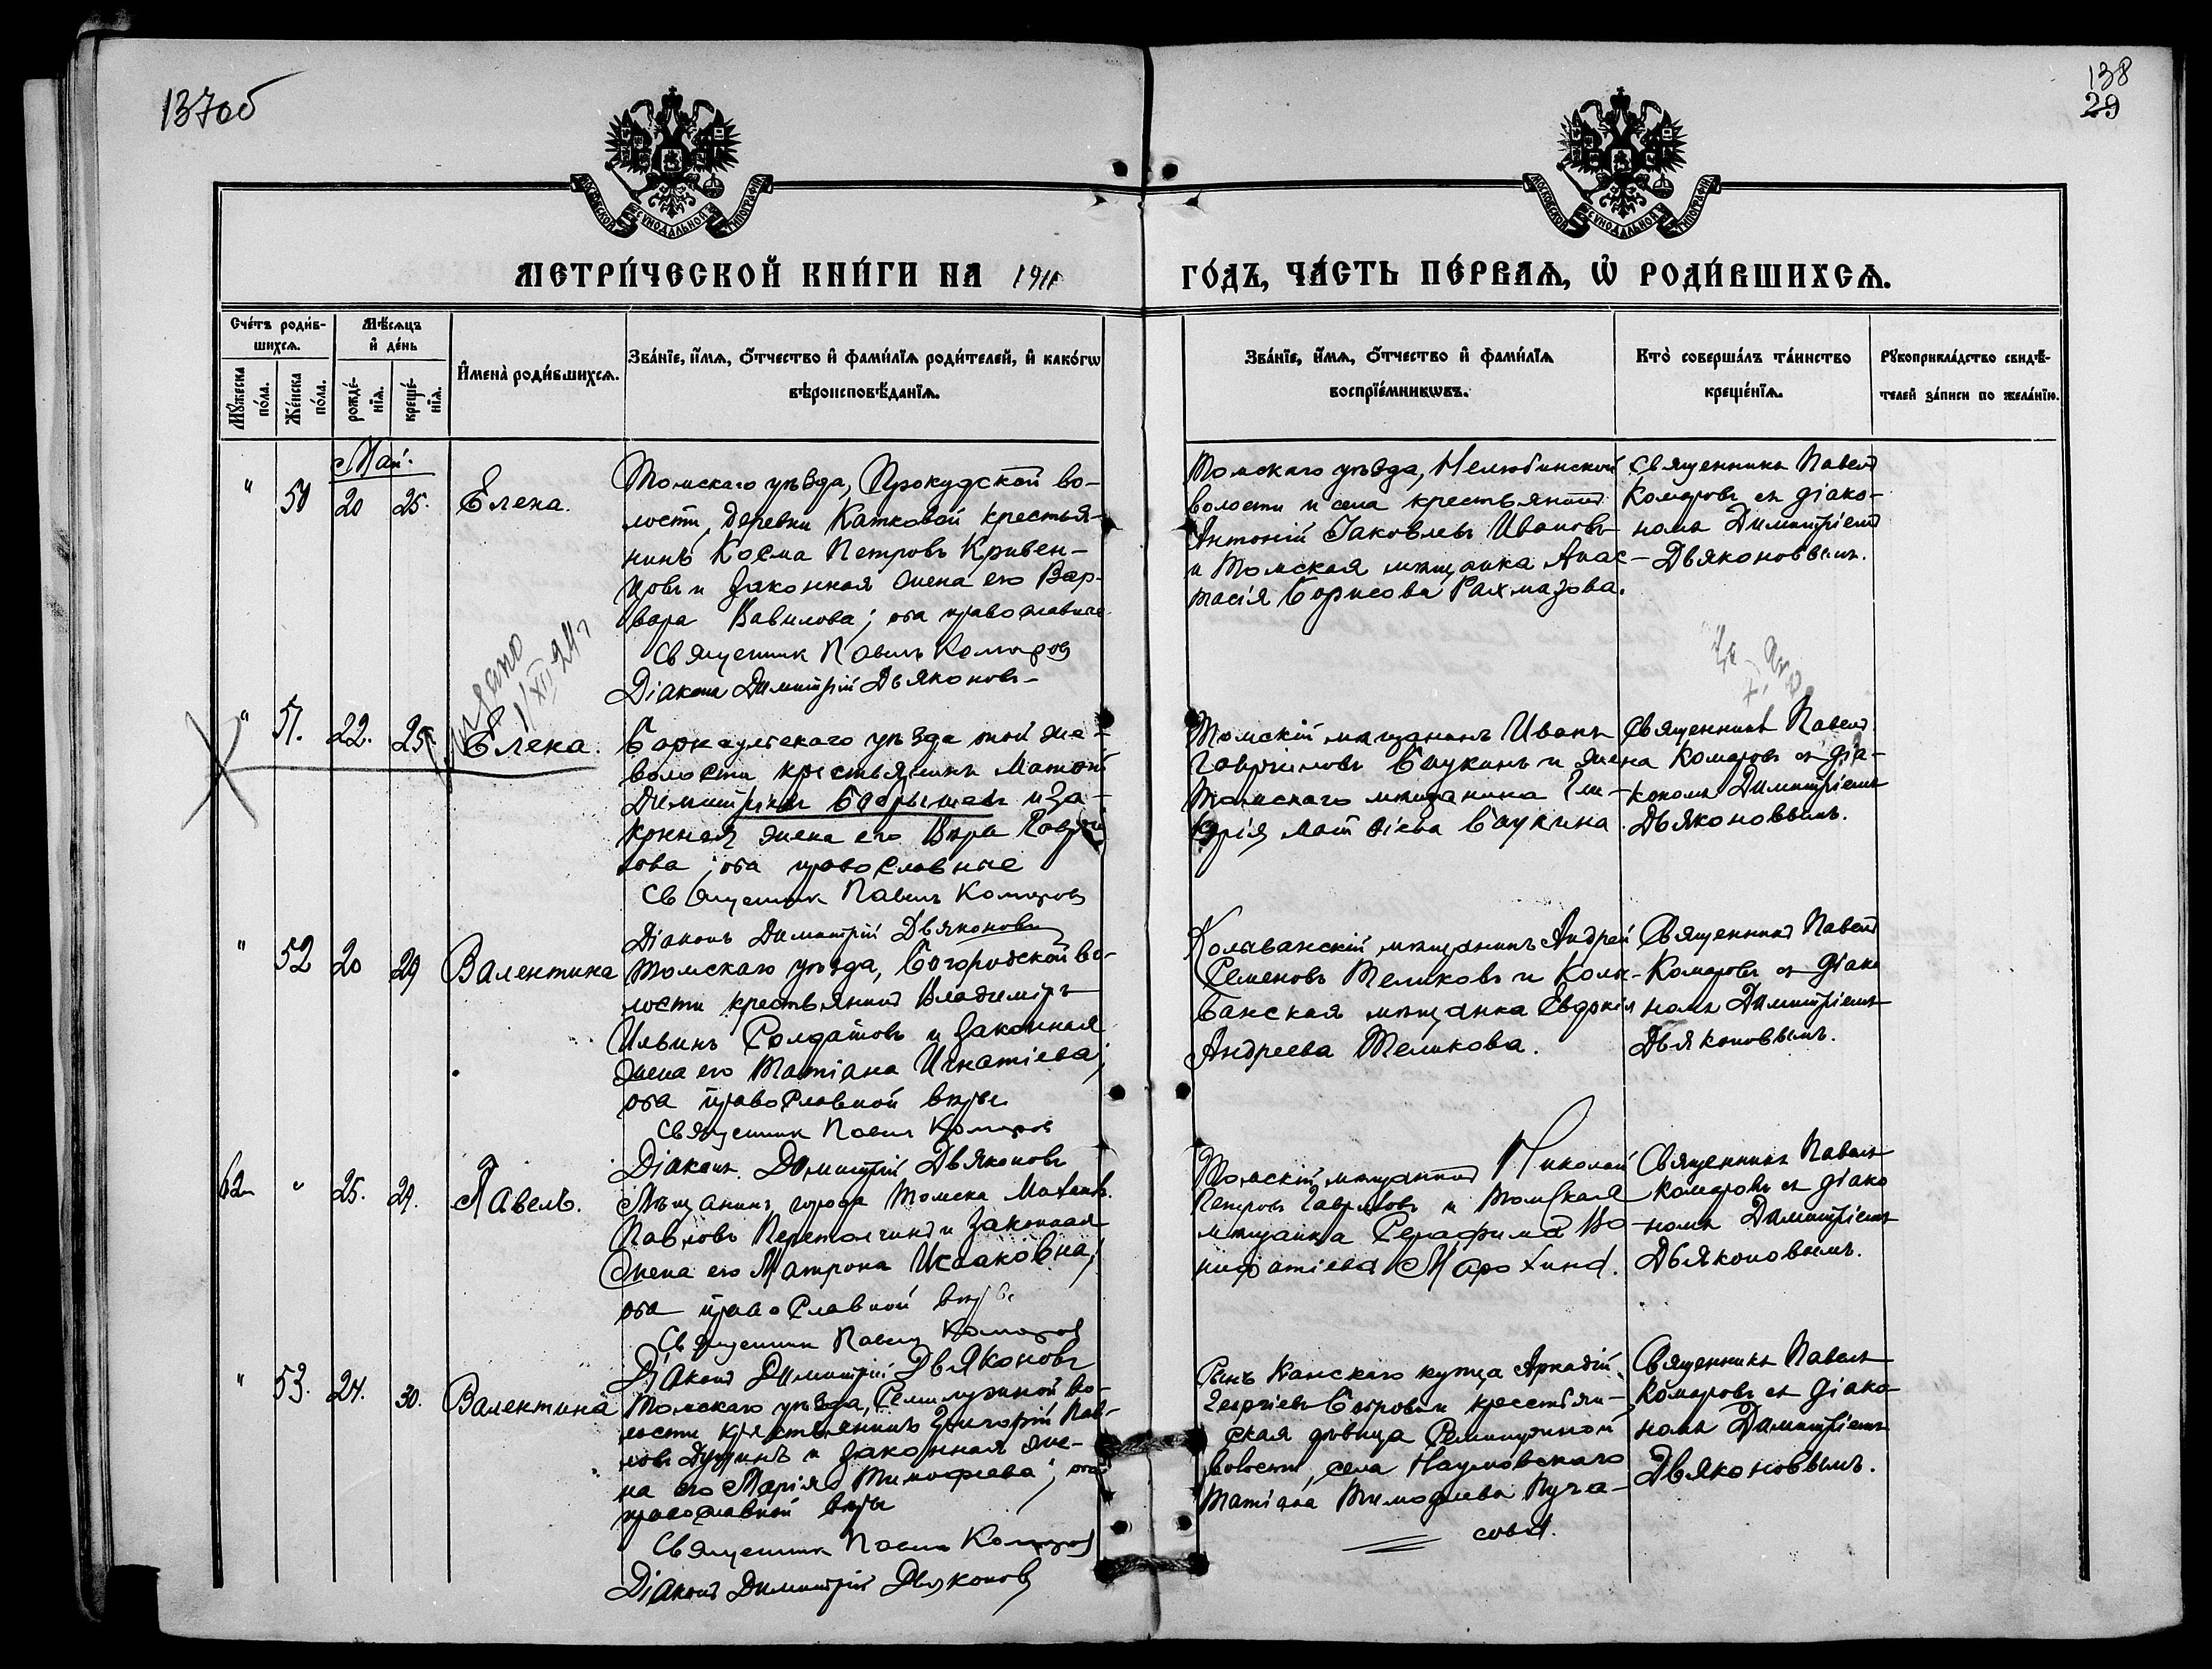 137об
138
29
МОСКОВСКОЙ СѴНОДАЛЬНОЙ ТИПОГРАФІИ
МОСКОВСКОЙ СѴНОДАЛЬНОЙ ТИПОГРАФІИ
МЕТРИ́ЧЕСКОЙ КНИ́ГИ НА 1911
ГО́ДЪ, ЧА́СТЬ ПЕ́РВАѦ, Ѡ҆ РОДИ́ВШИХСѦ.
Сче́тъ роди́в-
шихсѧ.
Мꙋ́жеска по́ла.
Же́нска по́ла.
Мѣ́сѧцъ
и҆ де́нь
рожде́-
нїѧ.
креще́-
нїѧ.
И҆мена̀ роди́вшихсѧ.
Зва́нїе, и҆́мѧ, ѻ҆́тчество и҆ фами́лїѧ роди́телей, и҆ како́гѡ
вѣроисповѣ́данїѧ.
Зва́нїе, и҆́мѧ, ѻ҆́тчество и҆ фами́лїѧ
воспрїе́мникѡвъ.
Кто̀ соверша́лъ та́инство
креще́нїѧ.
Рꙋкоприкла́дство свидѣ́-
телей за́писи по жела́нїю.
Май.
" 50 20 25. Елена.
Томскаго уѣзда, Прокудской во-
лости, деревни Катковой крестья-
нинъ Косма Петровъ Кривен-
цовъ и законная жена его Вар-
вара Вавилова; оба православные
Священникъ Павелъ Комаровъ
Діаконъ Димитрій Дьяконовъ
Томскаго уѣзда, Нелюбинской
волости и села крестьянинъ
Антоній Іаковлевъ Ивановъ
и Томская мѣщанка Анас-
тасія Борисова Рахмазова.
Священникъ Павелъ
Комаровъ съ діако-
номъ Димитріемъ
Дьяконовымъ.
" 51. 22. 25. Елена.
1/XII 24 г
Барнаульскаго уѣзда той же
волости крестьянинъ
Димитріевъ и за-
конная жена его Вѣра Гаври-
лова; оба православные
Священникъ Павелъ Комаровъ
Діаконъ Димитрій Дьяконовъ
Томскій мѣщанинъ Иванъ
Гавриловъ Баукинъ и жена
Томскаго мѣщанина Гли-
Баукина.
Священникъ Павелъ
Комаровъ съ діа-
кономъ Димитріемъ
Дьяконовымъ.
" 52 20 29 Валентина
Томскаго уѣзда, Богородской во-
лости крестьянинъ Владиміръ
Ильинъ Солдатовъ и законная
жена его Татіана Игнатіева;
оба православной вѣры
Священникъ Павелъ Комаровъ
Діаконъ Димитрій Дьяконовъ
Колыванскій мѣщанинъ Андрей
Семеновъ Теликовъ и Колы-
ванская мѣщанка Евдокія
Андреева Теликова.
Священникъ Павелъ
Комаровъ съ діако
номъ Димитріемъ
Дьяконовымъ.
62 " 25. 29. Павелъ.
Мѣщанинъ города Томска Михаилъ
Павловъ Перетолчинъ и законная
жена его Матрона Исааковна;
оба православной вѣры
Священникъ Павелъ Комаровъ
Діаконъ Димитрій Дьяконовъ
Томскій мѣщанинъ Николай
Петровъ Гавриловъ и Томская
мѣщанка Серафима Во
нифатіева
Священникъ Павелъ
Комаровъ съ діако
номъ Димитріемъ
Дьяконовымъ.
" 53. 24. 30. Валентина
Томскаго уѣзда, Семилужной во-
лости крестьянинъ Григорій Пав-
ловъ и законная же-
на его Марія Тимофеева; оба
православной вѣры
Священникъ Павелъ Комаровъ
Діаконъ Димитрій Дьяконовъ
Сынъ Канскаго купца Аркадій
Георгіевъ и крестьян-
ская дѣвица Семилужной
волости, села Наумовскаго
Татіана Тимофеева Пуга-
сова.
Священникъ Павелъ
Комаровъ съ діако
номъ Димитріемъ
Дьяконовымъ.